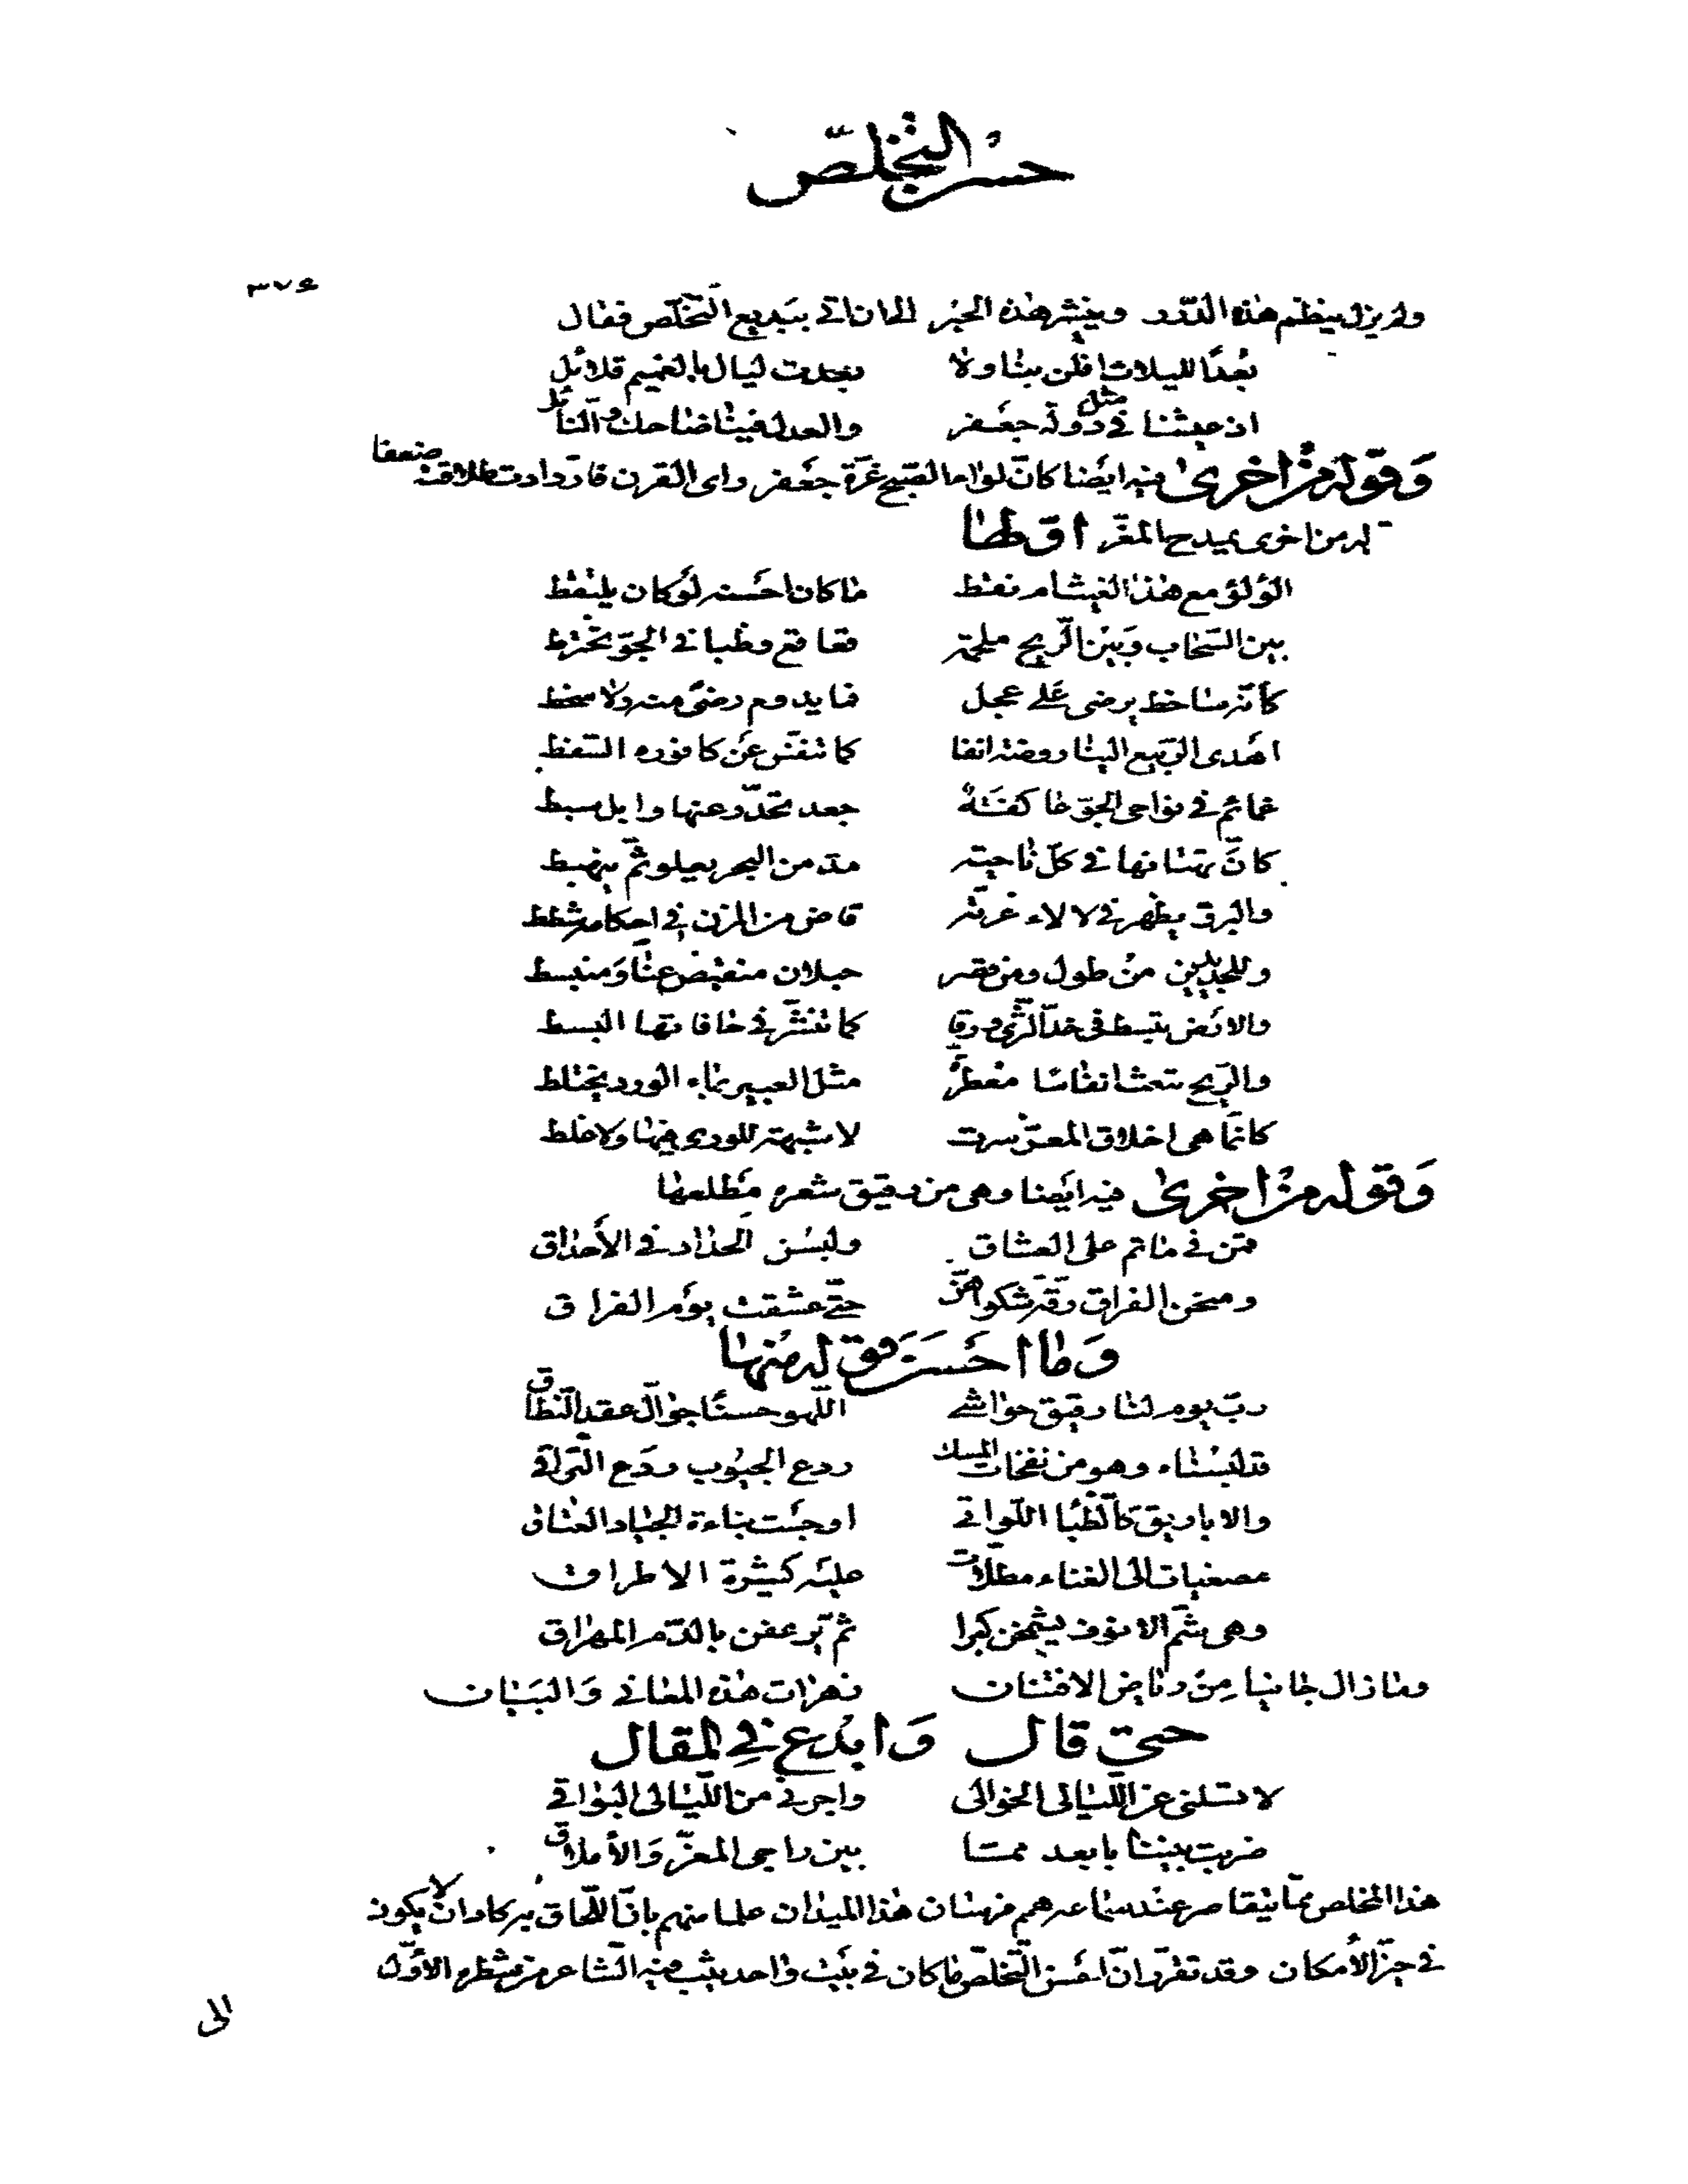 حسن التخلّص
٣٧٤
ولم يزل ينظم هذه الدّرر وينشر هذه الحبر الى ان اتى ببديع التّخلّص فقال
بُعدًا لليلات افلن بنا ولا بعدت ليال بالغميم قلائل
اذ عيشنا فى مثل دولة جعفر والعدل فينا ضاحك والنّائل
وَقوله من اخرى فيه ايضا كانّ لواء الصّبح غرّة جعفر راى القرن فازدادت طلاقته ضعفا
له من اخرى يمدح المعزّ اوّلها
الؤلؤ مع هذا الغيث ام نقط ما كان احسنه لو كان يلتقط
بين السّحاب وبين الرّيح ملحمة قعاقع وظبا فى الجوّ تخترط
كأنّه ساخط يرضى على عجل فما يدوم رضى منه ولا سخط
اهدى الرّبيع الينا روضة انفا كما تنفّس عن كافوره السّفط
غمائم فى نواحى الجوّ عاكفة جعد تحدّر عنها وابل سبط
كانّ تهتانها فى كلّ ناحية مدّ من البحر يعلو ثمّ ينهبط
والبرق يظهر فى لالاء غرّته قاض من المزن فى احكامه شطط
وللجديدين من طول ومن قصر حبلان منقبض عنّا ومنبسط
والارض تبسط فى خدّ الثّرى ورقا كما تنشّر فى حافاتها البسط
والرّيح تبعث انفاسا معطّرة مثل العبير بماء الورد يختلط
كانّما هى اخلاق المعزّ سرت لا شبهة للورى فيها ولا غلط
وَقوله من اخرى فيه ايضا وهى من رقيق شعره مطلعها
قمن فى ماتم على العشاق ولبسن الحداد فى الأحداق
ومنحن الفراق رقّة شكواهنّ حتّى عشقت يوم الفراق
وَما احسن قوله منها
ربّ يوم لنا رقيق حواشى اللّهو حسنًا جوّال عقد النّطاق
قد لبسناه وهو من نفحات المسك ردع الجيوب ردع التّراقى
والاباريق كالظّبا اللّواتى اوجست نباءة الجياد العتاق
مصغيات الى الغناء مطلّات عليه كثيرة الاطراق
وهى شمّ الانوف يشمخن كبرا ثمّ يرعفن بالدّم المهراق
وما زال جانيا من رياض الافتنان زهرات هذه المعانى وَالبيان
حتى قال وَابدع فى المقال
لا تسلنى عن اللّيالى الخوالى واجرنى من اللّيالى البواقى
ضربت بيننا بابعد ممّا بين راجى المعزّ وَالأملاق
هذا المخلص ممّا يتقاصر عنه سماعهم فرسان هذا الميدان علما منهم بانّ اللّحاق به كاد ان لا يكون
فى حيّز الأمكان وقد تقرّر انّ احسن التّخلّص ما كان فى بيت واحد يثب فيه الشّاعر من شطره الأوّل
الى